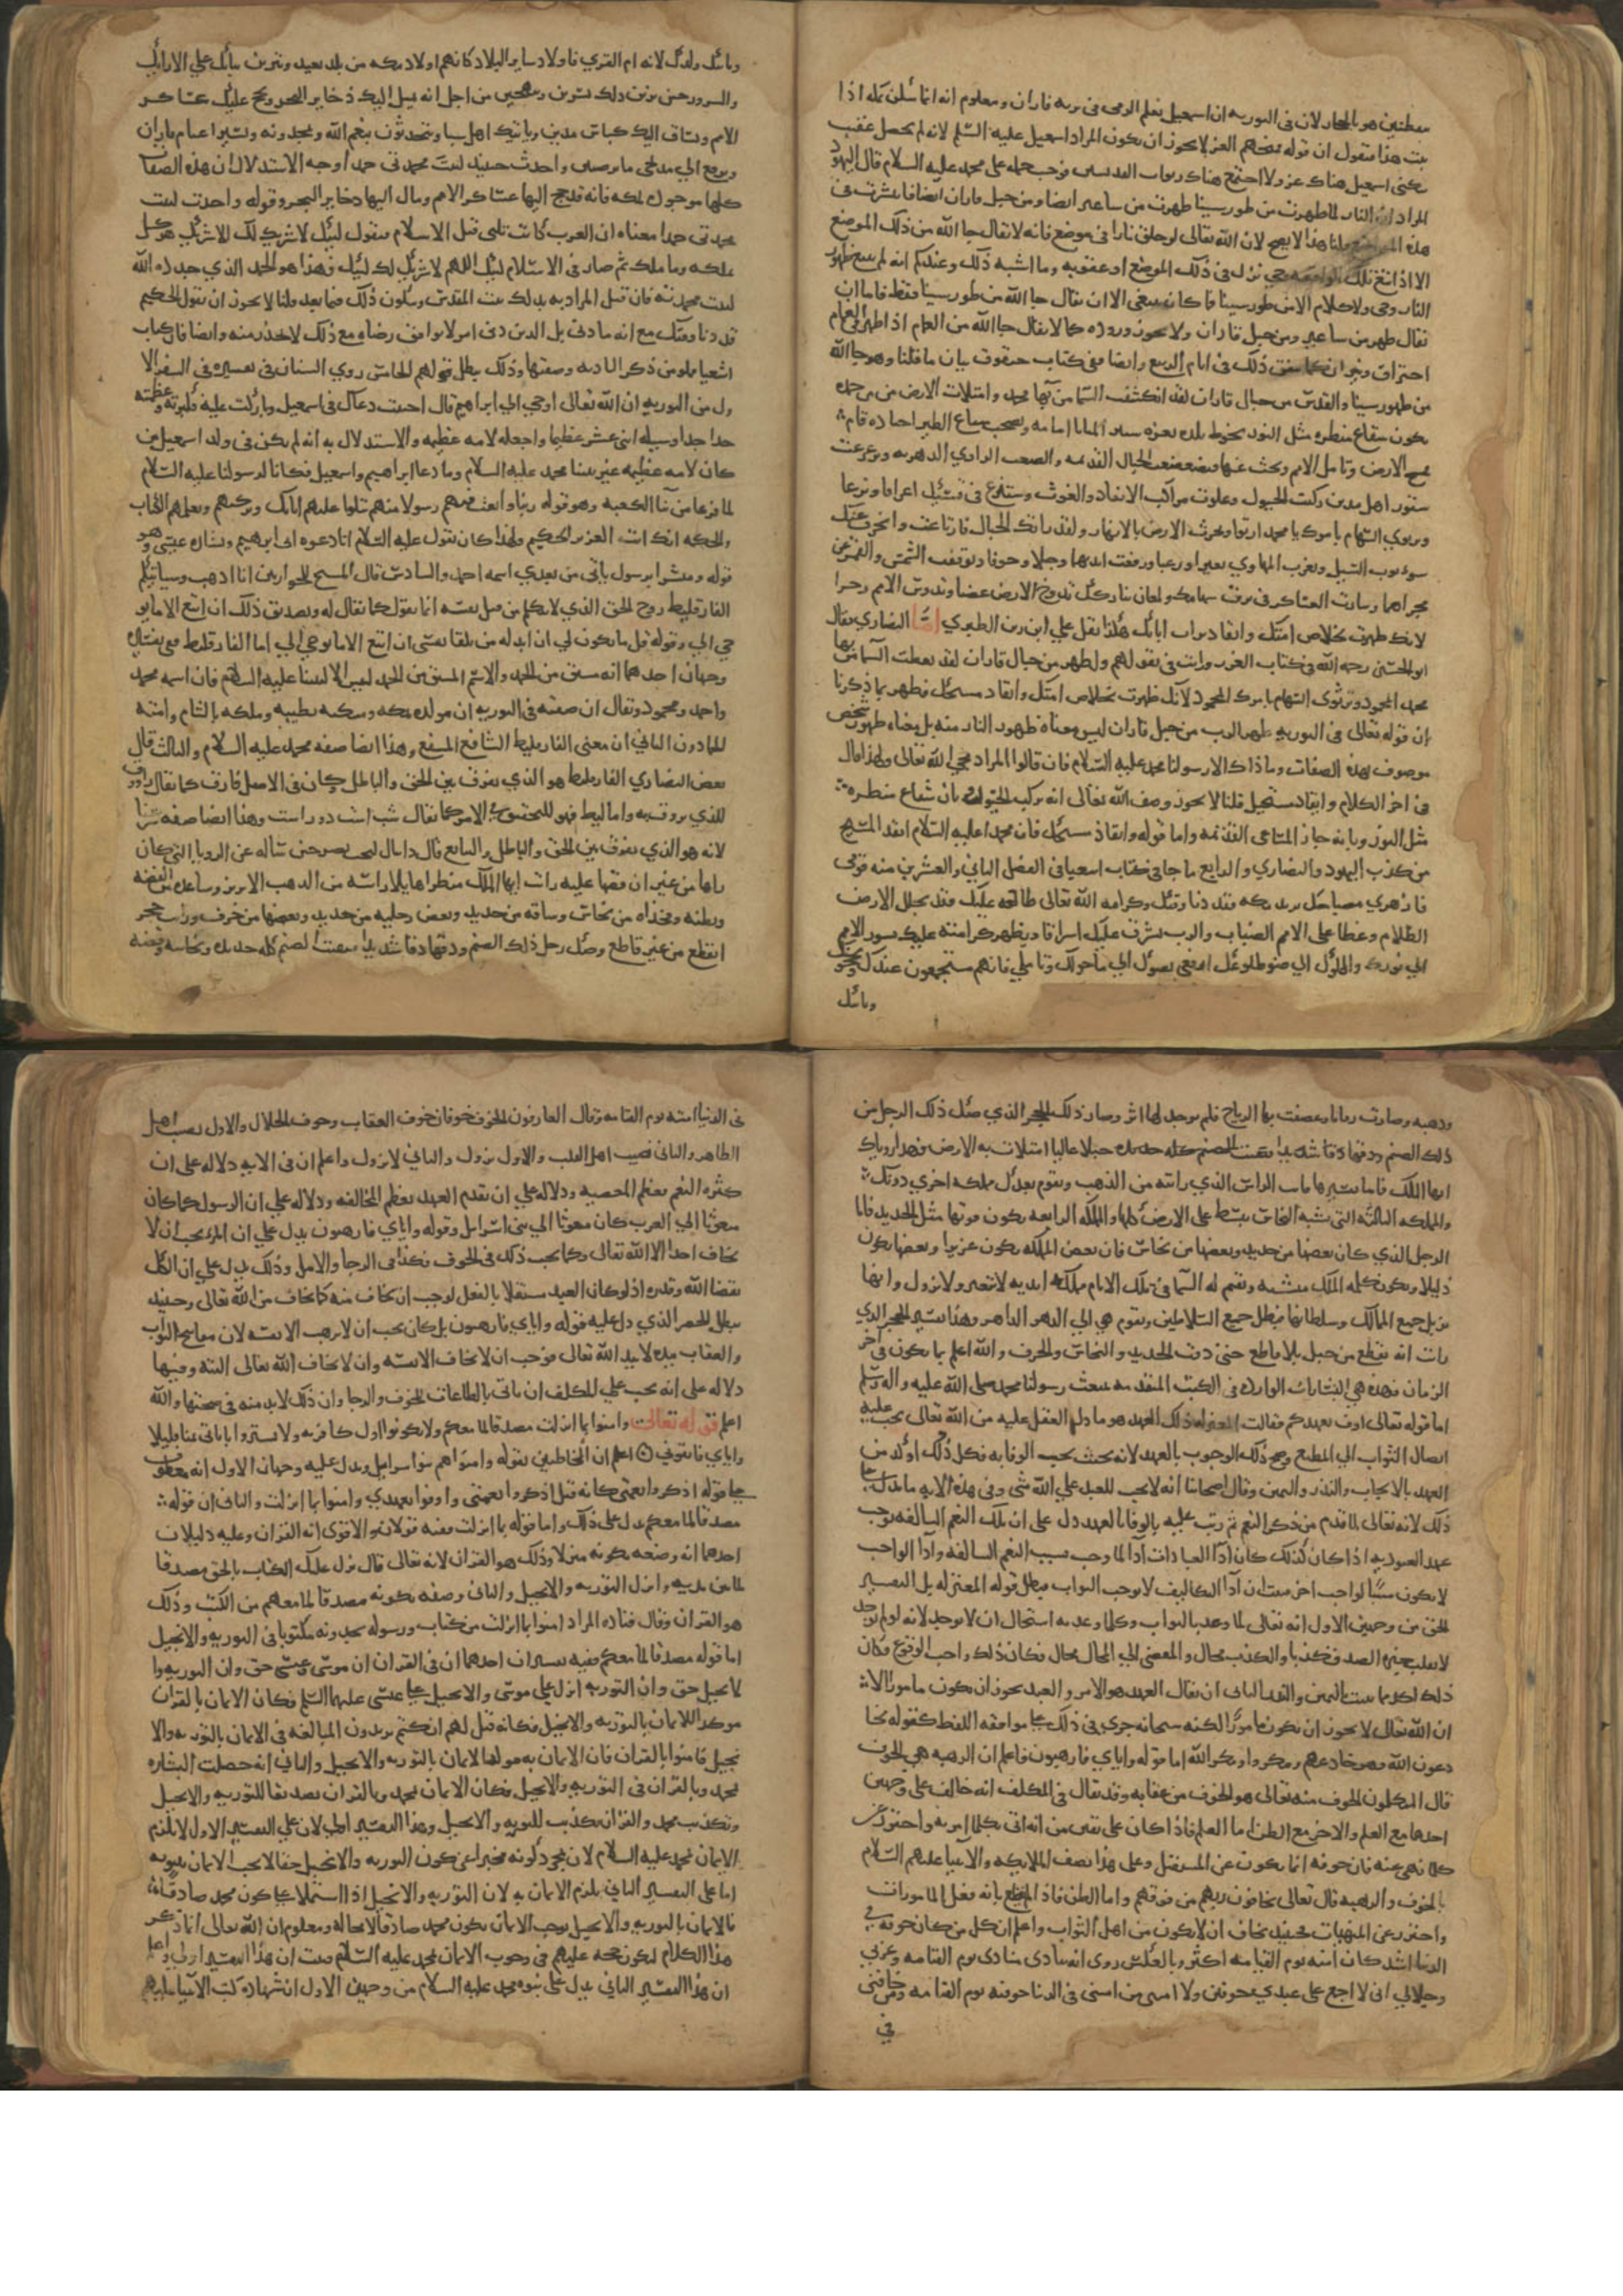 يقطنين هو بالحجاز لان في التوريه ان اسمعيل تعلم الرمي في بريه فاران ومعلوم انه انما سكن بمكه اذا
ثبت هذا فنقول ان قوله فمنحهم العز لا يجوز ان يكون المراد اسمعيل عليه السلم لانه لم يحصل عقيب
سكنى اسمعيل هناك عز ولا اجتمع هناك ربوات القديسين فوجب حمله على محمد عليه السلام قال اليهود
المراد ان النار لما ظهرت من طور سينا ظهرت من ساعير ايضا ومن جبل فاران ايضا فانتشرت في
هذه المواضع قلنا هذا لا يصح لان الله تعالى لو خلق نارا في موضع فانه لا يقال جا الله من ذلك الموضع
الا اذا تبع تلك الواقعه وحي نزل في ذلك الموضع او عقوبه وما اشبه ذلك وعندكم انه لم يتبع ظهور
النار وحي ولا كلام الا من طور سينا فما كان ينبغي الا ان يقال جا الله من طور سينا فقط فاما ان
يقال ظهر من ساعير ومن جبل فاران فلا يجوز وروده كما لا يقال جا الله من الغمام اذا ظهر في الغمام
احتراق ونيران كما يتفق ذلك في ايام الربيع وايضا ففي كتاب حبقوق بيان ما قلنا وهو جا الله
من طور سينا والقدس من جبال فاران لقد انكشفت السما من بها محمد وامتلات الارض من حمده
يكون شعاع منظره مثل النور يحوط بلده بعزه تسير المنايا امامه ويصحب سباع الطير اجناده قام
فمسح الارض وتامل الامم وبحث عنها فتضعضعت الجبال القديمه واتضعت الروابي الدهريه وتزعزعت
ستور اهل مدين ركبت الخيول وعلوت مراكب الانقياد والغوث وستنزع في قسيك اغراقا ونزعا
وترتوي السهام بامرك يا محمد ارتوا وتخور الارض بالانهار ولقد راتك الجبال فارتاعت وانحرف عنك
شوبوب السيل ونفرت المهاوي نفيرا ورعبا ورفعت ايديها وجلا وخوفا وتوقفت الشمس والقمر عن
مجراهما وسارت العساكر في برق سهامك ولمعان بيانك تدوخ الارض غضبا وتدوس الامم زجرا
لانك ظهرت بخلاص امتك وانقاذ تراب ابائك هكذا نقل علي ابن رزين الطبري اما النصارى فقال
ابو الحسين رحمه الله في كتاب الغرر ورايت في نقولهم وظهر من جبال فاران لقد تقطعت السما من بها
محمد المحمود وترتوي السهام بامرك المحمود لانك ظهرت بخلاص امتك وانقاذ مسيحك فظهر بما ذكرنا
ان قوله تعالى في التوريه ظهر الرب من جبل فاران ليس معناه ظهور النار منه بل معناه ظهور شخص
موصوف بهذه الصفات وما ذاك الا رسولنا محمد عليه السلام فان قالوا المراد مجي الله تعالى ولهذا قال
في اخر الكلام وانقاذ مسيحك قلنا لا يجوز وصف الله تعالى انه يركب الخيول وبان شعاع منظره
مثل النور وبانه جاز المشاعر القديمه واما قوله وانقاذ مسيحك فان محمدا عليه السلام انقذ المسيح
من كذب اليهود والنصارى والرابع ما جا في كتاب اشعيا في الفصل الثاني والعشرين منه قومي
فازهري مصباحك يريد مكه فقد دنا وقتك وكرامه الله تعالى طالعه عليك فقد تجلل الارض
الظلام وغطا على الامم الضباب والرب يشرق عليك اشراقا ويظهر كرامته عليك تسير الامم
الى نورك والملوك الى ضو طلوعك ارفعي بصرك الى ما حولك وتاملي فانهم مستجمعون عندك ويحجونك
وياتيك
وياتيك ولدك لانها ام القرى فاولاد ساير البلاد كانهم اولاد مكه من بلد بعيد وتتزين ثيابك على الارائك
والسرور حين ترين ذلك تسرين وتبتهجين من اجل انه يميل اليك ذخاير البحر ويحج عليك عساكر
الامم ويساق اليك كباش مدين وياتيك اهل سبا ويتحدثون بنعم الله ويمجدونه وتسير اغنام فاران
ويرفع الى مذبحي ما يرضيني واحدث حينيذ لبيت محمدتي حمدا وجه الاستدلال ان هذه الصفات
كلها موجوده لمكه فانه قد حج اليها عساكر الامم ومال اليها ذخاير البحر وقوله واحدث لبيت
محمدتي حمدا معناه ان العرب كانت تلبي قبل الاسلام فتقول لبيك لا شريك لك الا شريك هو لك
تملكه وما ملك ثم صار في الاسلام لبيك اللهم لا شريك لك لبيك فهذا هو الحمد الذي جدده الله
لبيت محمدته فان قيل المراد به بذلك بيت المقدس وسيكون ذلك فيما بعد قلنا لا يجوز ان يقول الحكيم
قد دنا وقتك مع انه ما دنى بل الذي دنى امر لا يوافق رضاه مع ذلك لا يحذر منه وايضا فان كتاب
اشعيا مملو من ذكر الباديه وصفتها وذلك يبطل قولهم الخامس روى السمان في تفسيره في السفر الا
ول من التوريه ان الله تعالى اوحى الى ابراهيم قال اجبت دعاك في اسمعيل وباركت عليه وكبرته وعظمته
جدا جدا وسيلد اثني عشر عظيما واجعله لامه عظيمه والاستدلال به انه لم يكن في ولد اسمعيل من
كان لامه عظيمه غير نبينا محمد عليه السلام وما دعا ابراهيم واسمعيل فكان لرسولنا عليه السلام
لما فرغا من بنا الكعبه وهو قوله ربنا وابعث فيهم رسولا منهم يتلوا عليهم اياتك ويزكيهم ويعلمهم الكتاب
والحكمه انك انت العزيز الحكيم ولهذا كان يقول عليه السلام انا دعوه ابي ابرهيم وبشاره عيسى وهو
قوله ومبشرا برسول ياتي من بعدي اسمه احمد والسادس قال المسيح للحواريين انا اذهب وسياتيكم
الفارقليط روح الحق الذي لا يتكلم من قبل نفسه انما يقول كما يقال له وتصديق ذلك ان اتبع الا ما يو
حى الي وقوله قل ما يكون لي ان ابدله من تلقا نفسي ان اتبع الا ما يوحى الي اما الفارقليط ففي تفسيره
وجهان احدهما انه مشتق من الحمد والاسم المشتق من الحمد ليس الا لنبينا عليه السلام فان اسمه محمد
واحمد ومحمود ويقال ان صفته في التوريه ان مولده بمكه ومسكنه بطيبه وملكه بالشام وامته
الحمادون الثاني ان معنى الفارقليط الشافع المشفع وهذا ايضا صفه محمد عليه السلام والثالث قال
بعض النصارى الفارقليط هو الذي يفرق بين الحق والباطل وكان في الاصل فارق كما يقال راووق
للذي يروق به واما ليط فهو للتحقيق في الامر كما يقال شيب اشيب ذو راست وهذا ايضا صفه شرعنا
لانه هو الذي يفرق بين الحق والباطل والسابع قال دانيال لبخت نصر حين ساله عن الرويا التي كان
راها من غير ان قصها عليه رايت ايها الملك منظرا هايلا راسه من الذهب الابريز وساعده من الفضه
وبطنه وفخذاه من نحاس وساقه من حديد وبعض رجليه من حديد وبعضها من خزف ورايت حجر
انقطع من غير قاطع وصك رجل ذلك الصنم ودقها دقا شديدا فتفتت الصنم كله حديده ونحاسه وفضته
وذهبه وصارت رفاتا وعصفت بها الرياح فلم يوجد لها اثر وصار ذلك الحجر الذي صك ذلك الرجل من
ذلك الصنم ودقها دقا شديدا تفتت الصنم كله حديده جبلا عاليا امتلات به الارض فهذا روياك
ايها الملك فاما تفسيرها فانت الراس الذي رايته من الذهب ويقوم بعدك مملكه اخرى دونك
والمملكه الثالثه التي تشبه النحاس تتسط على الارض كلها والمملكه الرابعه يكون قوتها مثل الحديد فاما
الرجل الذي كان بعضها من حديد وبعضها من نحاس فان بعض المملكه يكون عزيزا وبعضها يكون
ذليلا ويكون كلمه الملك مشتته ويقيم اله السما في تلك الايام مملكه ابديه لا تتغير ولا تزول وانها
تزيل جميع الممالك وسلطانها يبطل جميع السلاطين وتقوم هي الى الدهر الداهر وهذا تفسير الحجر الذي
رايت انه يقطع من جبل بلا قاطع حتى دقت الحديد والنحاس والخزف والله اعلم بما يكون في آخر
الزمان فهذه هي البشارات الوارده في الكتب المتقدمه بمبعث رسولنا محمد صلى الله عليه واله وسلم
اما قوله تعالى اوف بعهدكم فقالت المعتزله ذلك العهد هو ما دل العقل عليه من الله تعالى يجب عليه
ايصال الثواب الى المطيع وصح ذلك الوجوب بالعهد لانه بحيث يجب الوفا به فكل ذلك اوكد من
العهد بالايجاب والنذر واليمين وقال اصحابنا انه لا يجب للعبد على الله شي وفي هذه الايه ما يدل على
ذلك لانه تعالى لما قدم من ذكر النعم ثم رتب عليه بالوفا بالعهد دل على ان تلك النعم السالفه توجب
عهد العبوديه اذا كان كذلك كان آدا العبادات آدا لما وجب بسبب النعم السالفه وآدا الواجب
لا يكون سببا لواجب اخر فثبت ان آدا التكاليف لا يوجب الثواب فبطل قوله المعتزله بل التفسير
الحق من وجهين الاول انه تعالى لما وعد بالثواب وكلما وعد به استحال ان لا يوجد لانه لو لم يوجد
لانقلب خبره الصدق كذبا والكذب محال والمفضي الى المحال محال فكان ذلك واجب الوقوع فكان
ذلك اوكد مما ثبت باليمين والنذر الثاني ان يقال العهد هو الامر والعبد يجوز ان يكون مامورا الا
ان الله تعالى لا يجوز ان يكون مامورا لكنه سبحانه جرى في ذلك على موافقه اللفظ كقوله يخا
دعون الله وهو خادعهم ومكروا ومكر الله اما قوله واياي فارهبون فاعلم ان الرهبه هي الخوف
قال المتكلمون الخوف منه تعالى هو الخوف من عقابه وقد يقال في المكلف انه خائف على وجهين
احدها مع العلم والاخر مع الظن اما العلم فاذا كان على يقين من انه اتى بكلما امر به واحترز عن
كلما نهي عنه فان خوفه انما يكون عن المستقبل وعلى هذا نصف الملائكه والانبيا عليهم السلام
بالخوف والرهبه قال تعالى يخافون ربهم من فوقهم واما الظن فاذا لم يقطع بانه فعل المامورات
واحترز عن المنهيات فحينيذ يخاف ان لا يكون من اهل الثواب واعلم ان كل من كان خوفه في
الدنيا اشد كان امنه يوم القيامه اكثر وبالعكس روى انه ينادى منادى يوم القيامه وعزتي
وجلالي اني لا اجمع على عبدي خوفين ولا امنين من امنني في الدنيا خوفته يوم القيامه ومن خافني
في
في الدنيا امنته يوم القيامه وقال العارفون الخوف خوفان خوف العقاب وخوف الجلال والاول نصيب اهل
الظاهر والثاني نصيب اهل القلب والاول يزول والثاني لا يزول واعلم ان في الايه دلاله على ان
كثره النعم يعظم المعصيه ودلاله على ان تقدم العهد يعظم المخالفه ودلاله على ان الرسول كما كان
مبعوثا الى العرب كان مبعوثا الى بني اسرايل وقوله واياي فارهبون يدل على ان المرء يجب ان لا
يخاف احدا الا الله تعالى وكما يجب ذلك في الخوف فكذا في الرجا والامل وذلك يدل على ان الكل
بقضا الله وقدره اذ لو كان العبد مستقلا بالفعل لوجب ان يخاف منه كما يخاف من الله تعالى وحينيذ
يبطل الحصر الذي دل عليه قوله واياي فارهبون بل كان يجب ان لا يرهب الا نفسه لان مفاتيح الثواب
والعقاب بيده لا بيد الله تعالى فوجب ان لا يخاف الا نفسه وان لا يخاف الله تعالى البته وفيها
دلاله على انه يجب على المكلف ان ياتي بالطاعات للخوف والرجا وان ذلك لا بد منه في صحتها والله
اعلم قوله تعالى وامنوا بما انزلت مصدقا لما معكم ولا تكونوا اول كافر به ولا تشتروا باياتي ثمنا قليلا
واياي فاتقون اعلم ان المخاطبين بقوله وامنوا هم بنوا اسرايل ويدل عليه وجهان الاول انه معطوف
على قوله اذكروا نعمتي كانه قيل اذكروا نعمتي واوفوا بعهدي وامنوا بما انزلت والثاني ان قوله
مصدقا لما معكم يدل على ذلك واما قوله بما انزلت ففيه قولان الاقوى انه القران وعليه دليلان
احدهما انه وصفه بكونه منزلا وذلك هو القران لانه تعالى قال نزل عليك الكتاب بالحق مصدقا
لما بين يديه وانزل التوريه والانجيل والثاني وصفه بكونه مصدقا لما معهم من الكتب وذلك
هو القران وقال قتاده المراد امنوا بما انزلت من كتاب ورسول تجدونه مكتوبا في التوريه والانجيل
اما قوله مصدقا لما معكم ففيه تفسيران احدهما ان في القران ان موسى وعيسى حق وان التوريه وا
لانجيل حق وان التوريه انزل على موسى والانجيل على عيسى عليهما السلم فكان الايمان بالقران
موكدا للايمان بالتوريه والانجيل فكانه قيل لهم ان كنتم تريدون المبالغه في الايمان بالتوريه والا
نجيل فامنوا بالقران فان الايمان به موكد للايمان بالتوريه والانجيل والثاني انه حصلت البشاره
بمحمد وبالقران في التوريه والانجيل فكان الايمان بمحمد وبالقران تصديقا للتوريه والانجيل
وتكذيب محمد والقران تكذيب للتوريه والانجيل وهذا التفسير اولى لان على التفسير الاول لا يلزم
الايمان بمحمد عليه السلام لان بمجرد كونه مخبرا عن كون التوريه والانجيل حقا لا يجب الايمان بنبوته
اما على التفسير الثاني يلزم الايمان به لان التوريه والانجيل اذا اشتملا على كون محمد صادقا
فالايمان بالتوريه والانجيل يوجب الايمان بكون محمد صادقا لا محاله ومعلوم ان الله تعالى انما ذكر
هذا الكلام ليكون حجه عليهم في وجوب الايمان بمحمد عليه السلام فثبت ان هذا التفسير اولى واعلم
ان هذا التفسير الثاني يدل على نبوه محمد عليه السلام من وجهين الاول ان شهاده كتب الانبيا عليهم